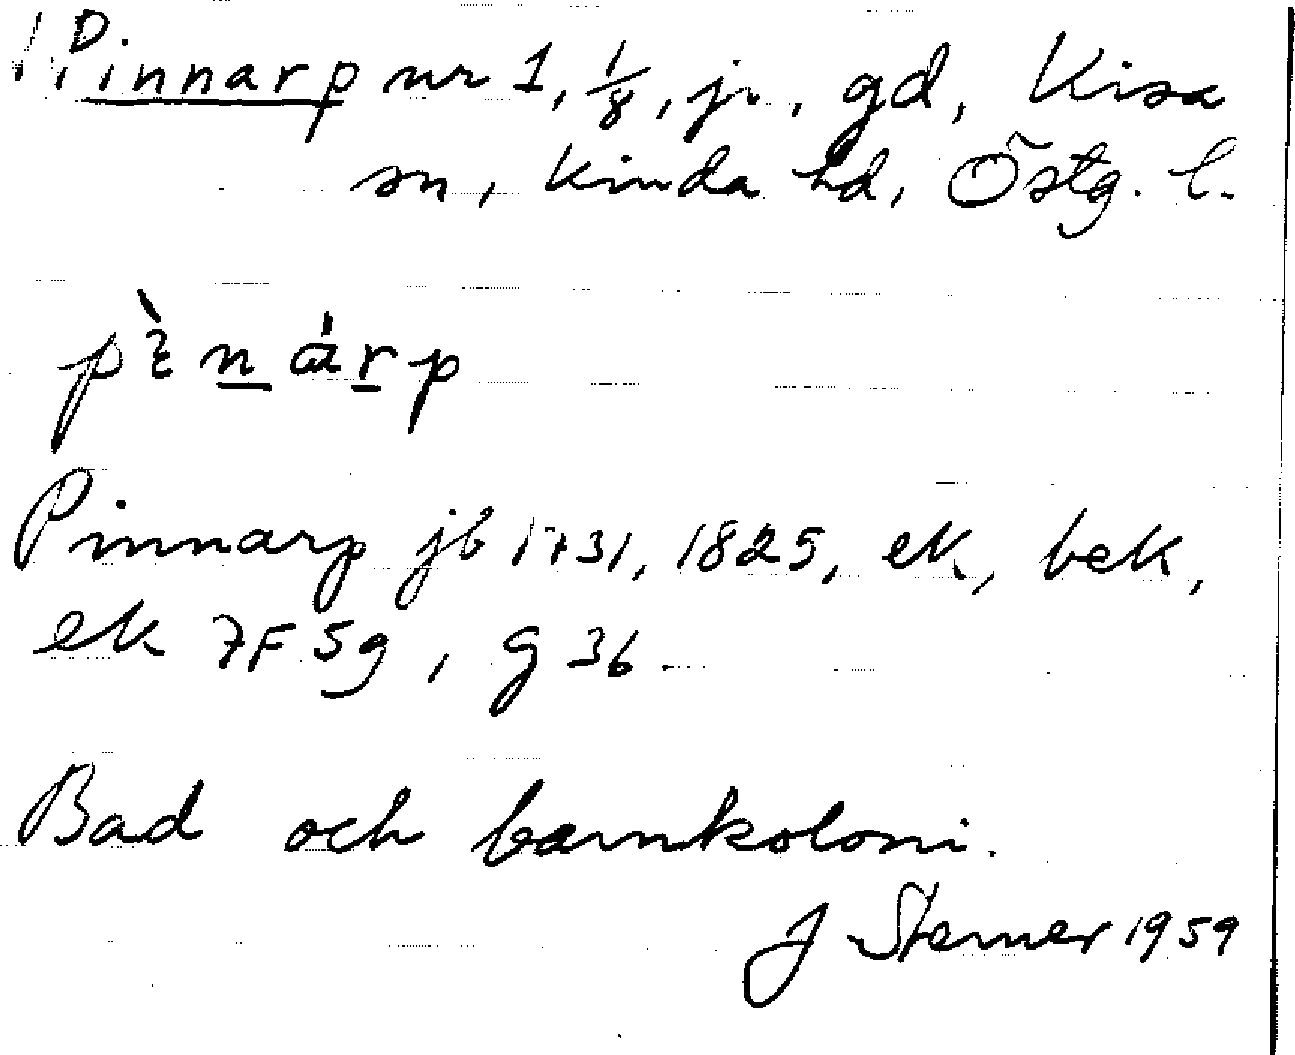 Pinnarp nr 1, 1/8, jo., gd, Kisa
sn, Kinda hd, Östg. l.
Pinnarp jb 1731, 1825, ek, bek,
ek 7F 5g, g 36
Bad och barnkoloni.
J Sterner 1959